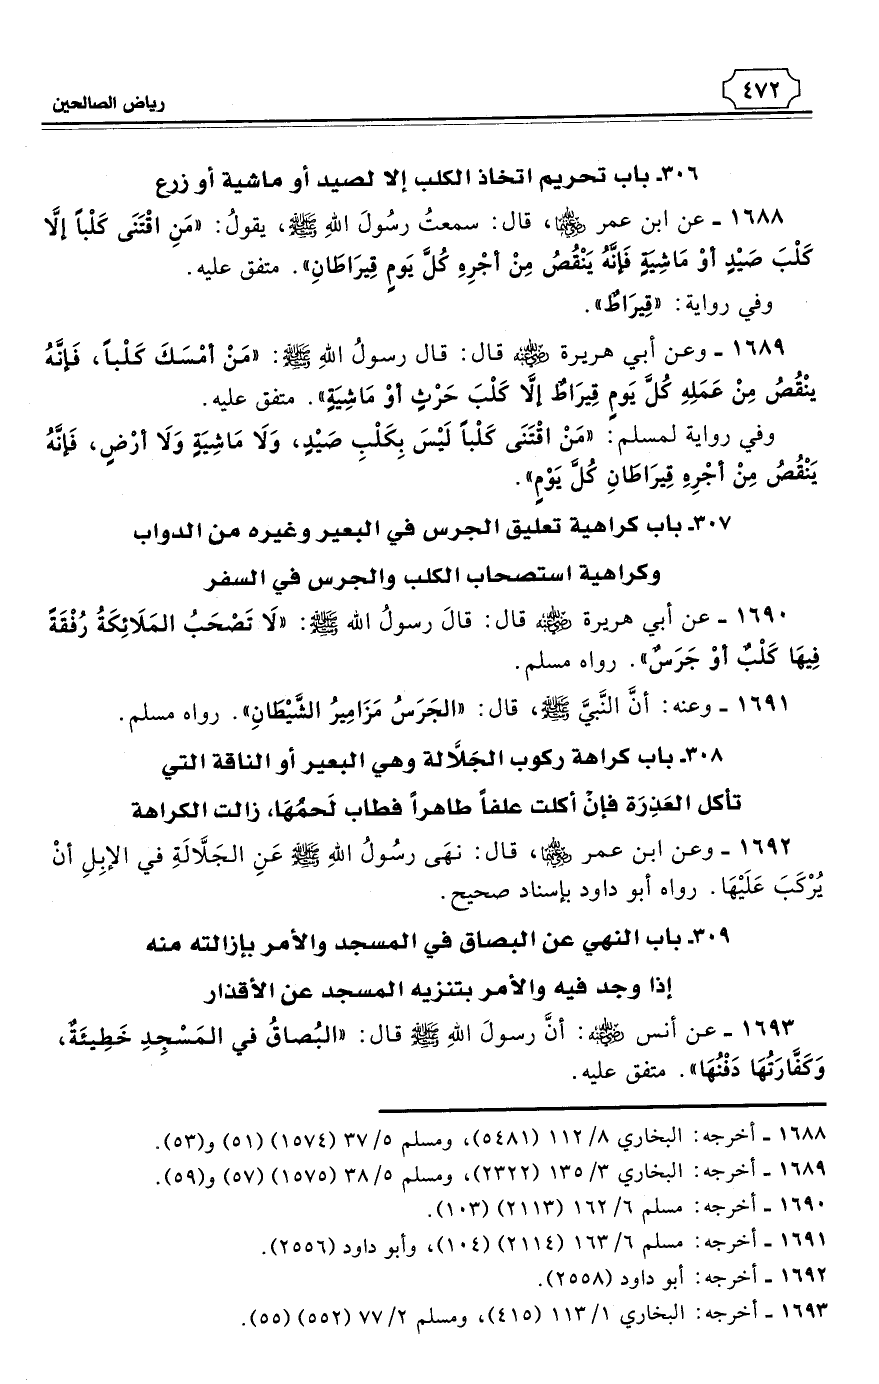 ٤٧٢
رياض الصالحين
٣٠٦ـ باب تحريم اتخاذ الكلب إلا لصيد أو ماشية أو زرع
١٦٨٨ ـ عن ابن عمر رضي الله عنهما، قال: سمعتُ رسُولَ اللهِ ﷺ، يقولُ: «مَنِ اقْتَنَى كَلْباً إلَّا
كَلْبَ صَيْدٍ أوْ مَاشِيَةٍ فَإنَّهُ يَنْقُصُ مِنْ أجْرِهِ كُلَّ يَومٍ قِيرَاطَانِ». متفق عليه.
وفي رواية: «قِيرَاطٌ».
١٦٨٩ ـ وعن أبي هريرة رضي الله عنه قال: قال رسولُ اللهِ ﷺ: «مَنْ أمْسَكَ كَلْباً، فَإنَّهُ
ينْقُصُ مِنْ عَمَلِهِ كُلَّ يَومٍ قِيرَاطٌ إلَّا كَلْبَ حَرْثٍ أوْ مَاشِيَةٍ». متفق عليه.
وفي رواية لمسلم: «مَنْ اقْتَنَى كَلْباً لَيْسَ بِكَلْبِ صَيْدٍ، وَلَا مَاشِيَةٍ وَلَا أرْضٍ، فَإنَّهُ
يَنْقُصُ مِنْ أجْرِهِ قِيرَاطَانِ كُلَّ يَوْمٍ».
٣٠٧ـ باب كراهية تعليق الجرس في البعير وغيره من الدواب
وكراهية استصحاب الكلب والجرس في السفر
١٦٩٠ ـ عن أبي هريرة رضي الله عنه قال: قالَ رسولُ الله ﷺ: «لَا تَصْحَبُ المَلَائِكَةُ رُفْقَةً
فِيهَا كَلْبٌ أوْ جَرَسٌ». رواه مسلم.
١٦٩١ ـ وعنه: أنَّ النَّبيَّ ﷺ، قال: «الجَرَسُ مَزَامِيرُ الشَّيْطَانِ». رواه مسلم.
٣٠٨ـ باب كراهة ركوب الجَلاَّلة وهي البعير أو الناقة التي
تأكل العَذِرَة فإنْ أكلت علفاً طاهراً فطاب لَحمُهَا، زالت الكراهة
١٦٩٢ ـ وعن ابن عمر رضي الله عنهما، قال: نهَى رسُولُ اللهِ ﷺ عَنِ الجَلَّالَةِ في الإبِلِ أنْ
يُرْكَبَ عَلَيْهَا. رواه أبو داود بإسناد صحيح.
٣٠٩ـ باب النهي عن البصاق في المسجد والأمر بإزالته منه
إذا وجد فيه والأمر بتنزيه المسجد عن الأقذار
١٦٩٣ ـ عن أنس رضي الله عنه: أنَّ رسولَ اللهِ ﷺ قال: «البُصاقُ في المَسْجِدِ خَطِيئَةٌ،
وَكَفَّارَتُهَا دَفْنُهَا». متفق عليه.
١٦٨٨ ـ أخرجه: البخاري ٨/ ١١٢ (٥٤٨١)، ومسلم ٥/ ٣٧ (١٥٧٤) (٥١) و(٥٣).
١٦٨٩ ـ أخرجه: البخاري ٣/ ١٣٥ (٢٣٢٢)، ومسلم ٥/ ٣٨ (١٥٧٥) (٥٧) و(٥٩).
١٦٩٠ ـ أخرجه: مسلم ٦/ ١٦٢ (٢١١٣) (١٠٣).
١٦٩١ ـ أخرجه: مسلم ٦/ ١٦٣ (٢١١٤) (١٠٤)، وأبو داود (٢٥٥٦).
١٦٩٢ ـ أخرجه: أبو داود (٢٥٥٨).
١٦٩٣ ـ أخرجه: البخاري ١/ ١١٣ (٤١٥)، ومسلم ٢/ ٧٧ (٥٥٢) (٥٥).